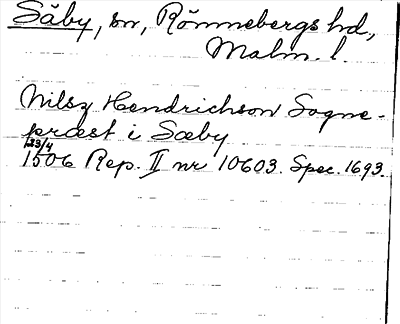 Säby, sn, Rönnebergs hd,
Malm. l.
Nilsz Hendrichson Sogne-
præst i Sæby
23/4
1506 Rep. II nr 10603. Spec. 1693.